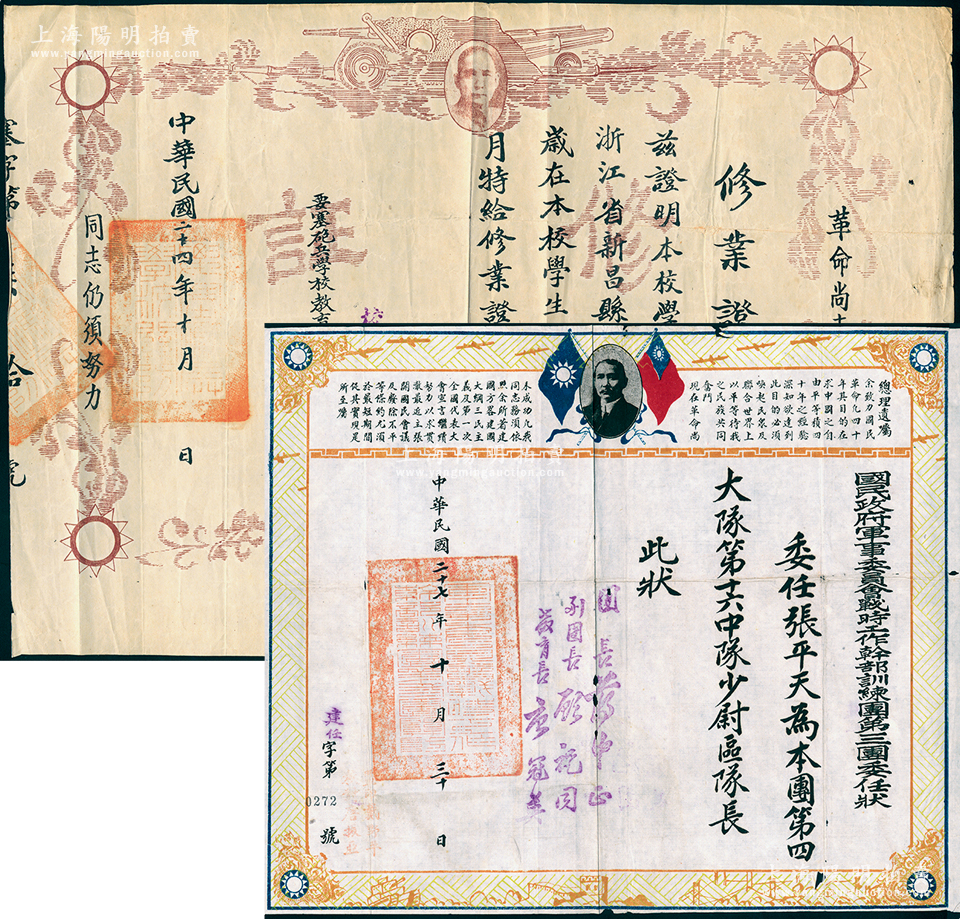 上海陽明拍賣
www.yangmingauction.com
革命尚
修業證
茲證明本校學
浙江省新昌縣
歲在本校學生
月特給修業證
修
証
要塞砲兵學校教育
校
中華民國二十四年十月 日
同志仍須努力
塞字第
拾
號
總理遺囑
余致力國民
革命凡四十
年其目的在
求中國之自
由平等積四
十年之經驗
深知欲達到
此目的必須
喚起民眾及
聯合世界上
以平等待我
之民族共同
奮鬥
現在革命尚
未成功凡我
同志務須依
照余所著建
國方畧建國
大綱三民主
義及第一次
全國代表大
會宣言繼續
努力以求貫
徹最近主張
開國民會議
及廢除不平
等條約尤須
於最短期間
促其實現是
所至囑
國民政府軍事委員會戰時工作幹部訓練團第三團委任狀
委任張平天為本團第四
大隊第十六中隊少尉區隊長
此狀
團長蔣中正
副團長顧祝同
教育長
中華民國二十七年十月三十日
建任字第
0272
號
上海陽明拍賣
www.yangmingauction.com
上海陽明拍賣
www.yangmingauction.com